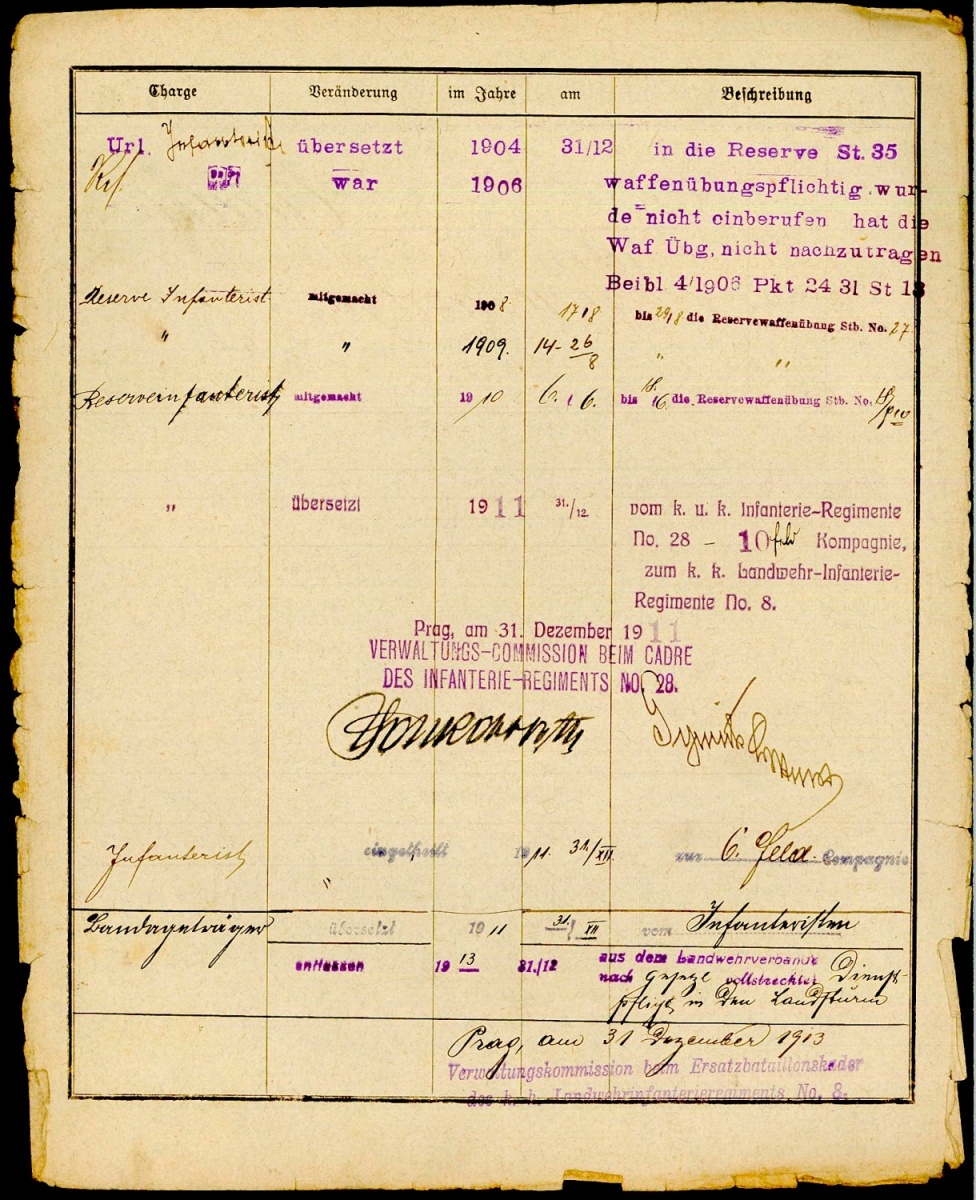 Charge Veränderung im Jahre am Beschreibung
Url. Infanterist übersetzt 1904 31/12 in die Reserve St. 35
war 1906 waffenübungspflichtig wur-
de nicht einberufen hat die
Waf Übg, nicht nachzutragen
Beibl 4/1906 Pkt 24 31 St 13
Reserve Infanterist mitgemacht 1908 17/8 bis 29/8 die Reservewaffenübung Stb. No. 27
" " 1909. 14-26/8 " "
Reserveinfanterist mitgemacht 1910 6. 6. bis 18. 6. die Reservewaffenübung Stb. No.
" übersetzt 1911 31./12. vom k. u. k. Infanterie-Regimente
No. 28 – 10 feld Kompagnie,
zum k. k. Landwehr-Infanterie-
Regimente No. 8.
Prag, am 31. Dezember 1911
VERWALTUNGS-COMMISSION BEIM CADRE
DES INFANTERIE-REGIMENTS NO. 28.
Infanterist eingetheilt 1911. 31./XII zur 6. Feld Compagnie
"
Bandageträger übersetzt 1911 31./XII vom Infanteristen
entlassen 1913 31./12 aus dem Landwehrverbande
nach Gesetzl vollstreckter Dienst-
pflicht in den Landsturm
Prag, am 31 Dezember 1913
Verwaltungskommission beim Ersatzbataillonskader
des k. k. Landwehrinfanterieregiments No. 8.